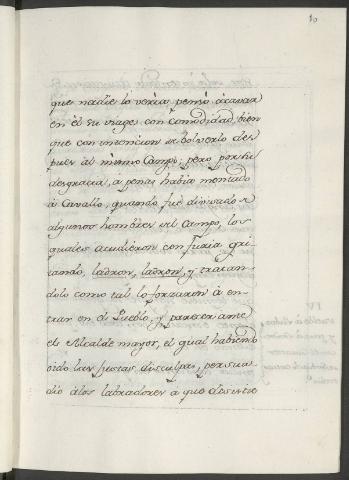 10
que nadie lo veria, pensó acavar
en él su viage con comodidad, bien
que con intencion de bolverlo des
pues al mismo Campo; pero por su
desgracia, á penas habia montado
á Cavallo, quando fué divisado de
algunos hombres del Campo, los
quales acudieron con furia gri-
tando, ladron, ladron, y tratan-
dolo como tal lo forzaron á en-
trar en el Pueblo, y parecer ante
el Alcalde mayor, el qual habiendo
oido las justas disculpas, persua-
dió á los labradores a que